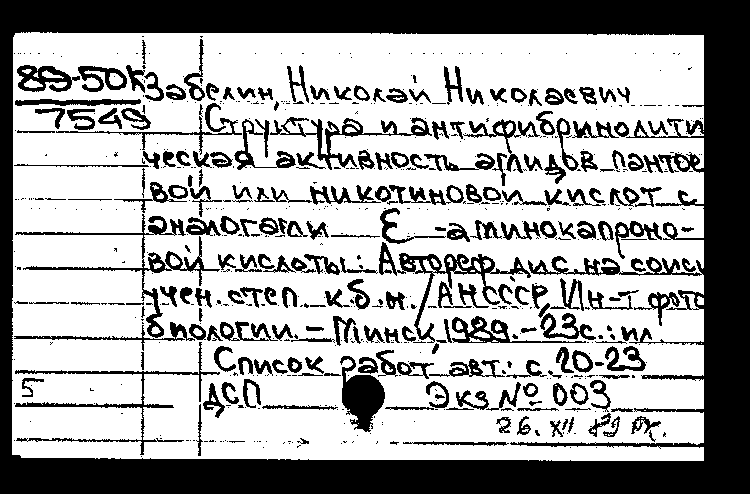 89-50к Забелин, Николай Николаевич
7549 Структура и антифибринолити
ческая активность амидов пантое
вой или никотиновой кислот с
аналогами Ɛ -аминокапроно-
вой кислоты: Автореф. дис. на соиск
учен. степ. к.б.н. / АН СССР, Ин-т фото
биологии. - Минск, 1989. - 23с.: ил.
Список работ авт.: с. 20-23
5 ДСП Экз № 003
26. XII 89